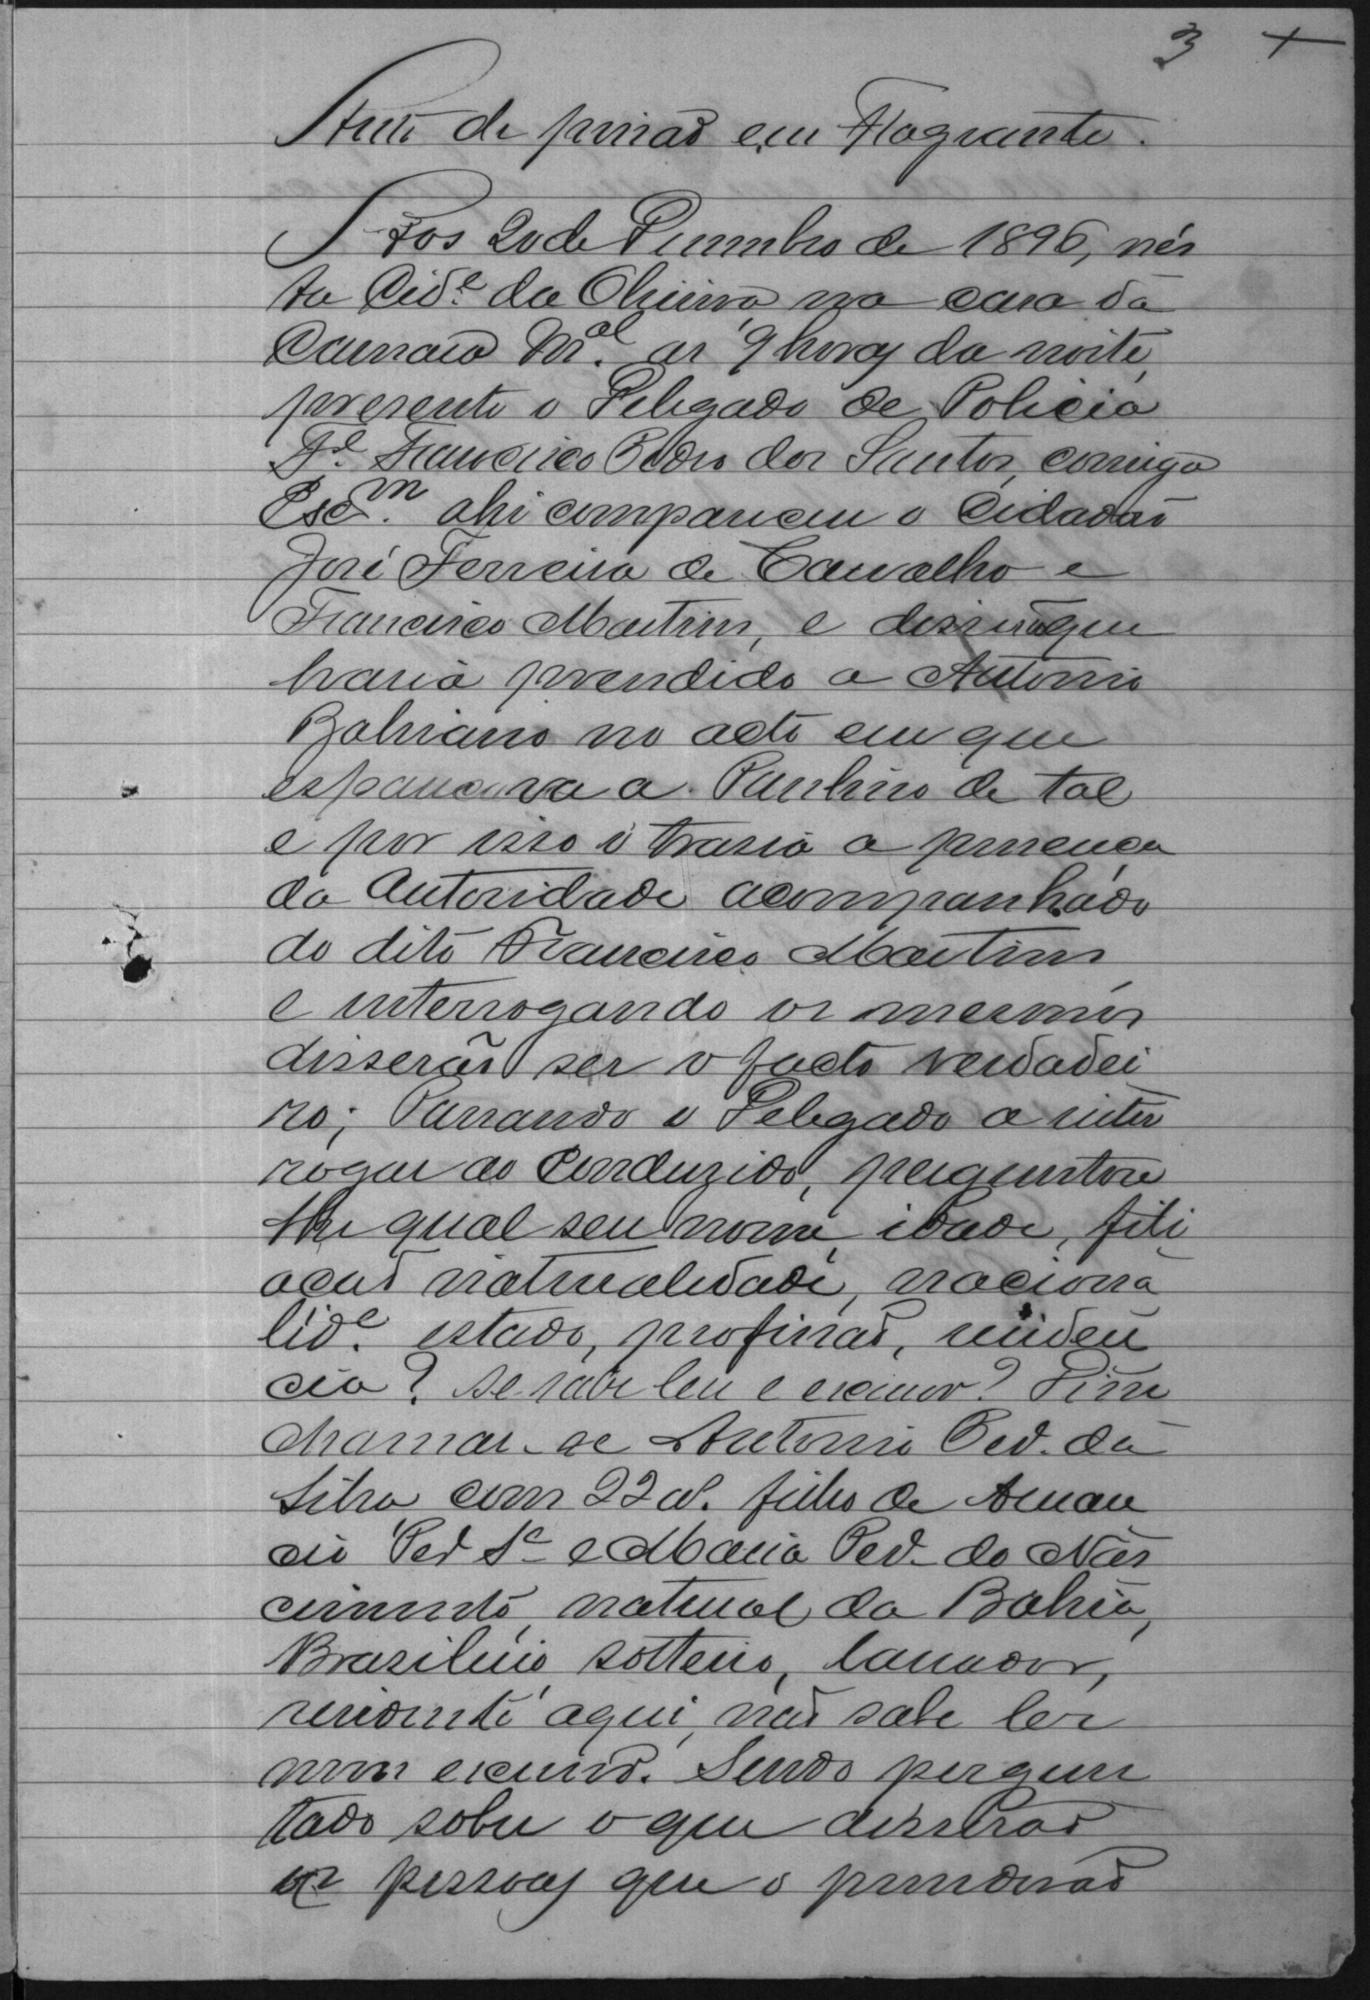 3
Auto de prisão em Flagrante.
Aos 20 de Dezembro de 1896, nés
ta Cid.e da Oliveira na casa da
Camara M.al as 9 horas da noite,
presente o Delegado de Policia
Francisco Pedro dos Santos, comigo
Esc.m ahi compareceu o Cidadão
José Ferreira de Carvalho e
Francisco Martins, e disserão que
havia prendido a Antonio
Bahiano no acto em que
espancava a Paulino de tal
e por isso o trasia a presença
da Autoridade acompanhado
do dito Francisco Martins
e interrogando os mesmos
disserão ser o facto verdadei
ro; Passando o Delegado a inter
rogar ao Conduzido, perguntou
lhe qual seu nome, idade, fili
acão naturalidade, naciona
lid.e estado, profissão, residen
cia? se sabe ler e escrever? Disse
chamar-se Antonio Ped. da
Silva com 22 a. filho de Aman
cio Ped S.a e Maria Ped. do Nas
cimento, natural da Bahia,
Brasileiro solteiro, lavrador,
residente aqui, não sabe ler
nem escrever. Sendo pergun
tado sobre o que disserão
as pessoas que o prenderão